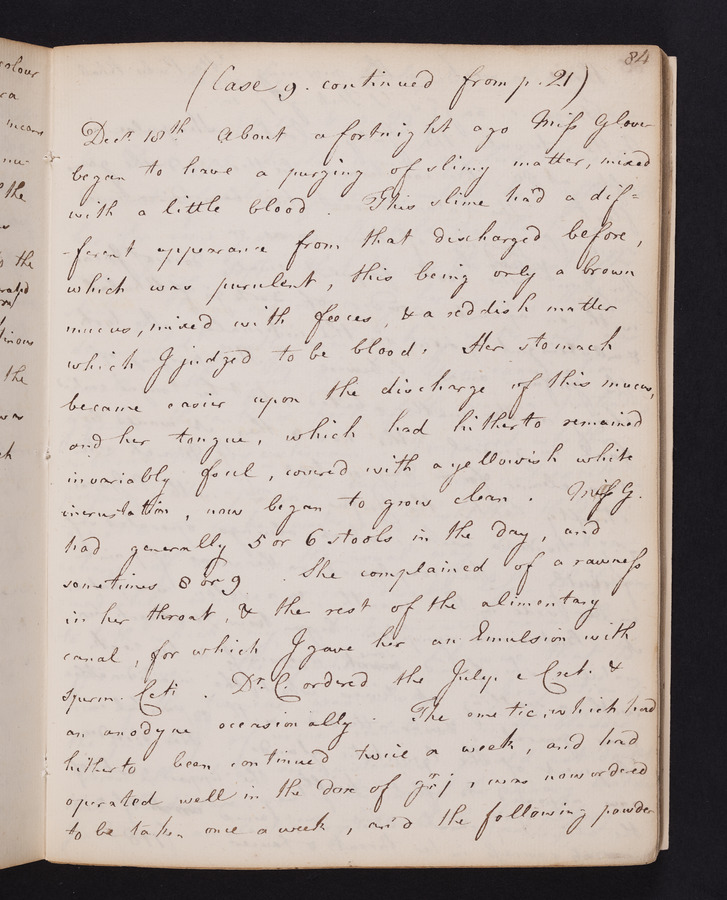 84
(Case 9. continued from p. 21)
Decr. 18th. About a fortnight ago Miss Glover
began to have a purging of slimy matter, mixed
with a little blood. This slime had a dif=
-ferent appearance from that discharged before,
which was purulent, this being only a brown
mucus, mixed with foeces, & a reddish matter
which I judged to be blood. Her stomach
became easier upon the discharge of this mucus,
and her tongue, which had hitherto remained
invariably foul, covered with a yellowish white
incrustation, now began to grow clean. Miss G.
had generally 5 or 6 stools in the day, and
sometimes 8 or 9. She complained of a rawness
in her throat, & the rest of the alimentary
canal, for which I gave her an Emulsion with
sperm. Cet. Dr. C. ordered the Julep. e Cret. &
an anodyne occasionally. The emetic, which had
hitherto been continued twice a week, and had
operated well in the dose of grj, was now ordered
to be taken once a week, and the following powder
colour
ra
means
mu-
the
the
rated
tinous
the
was
ch